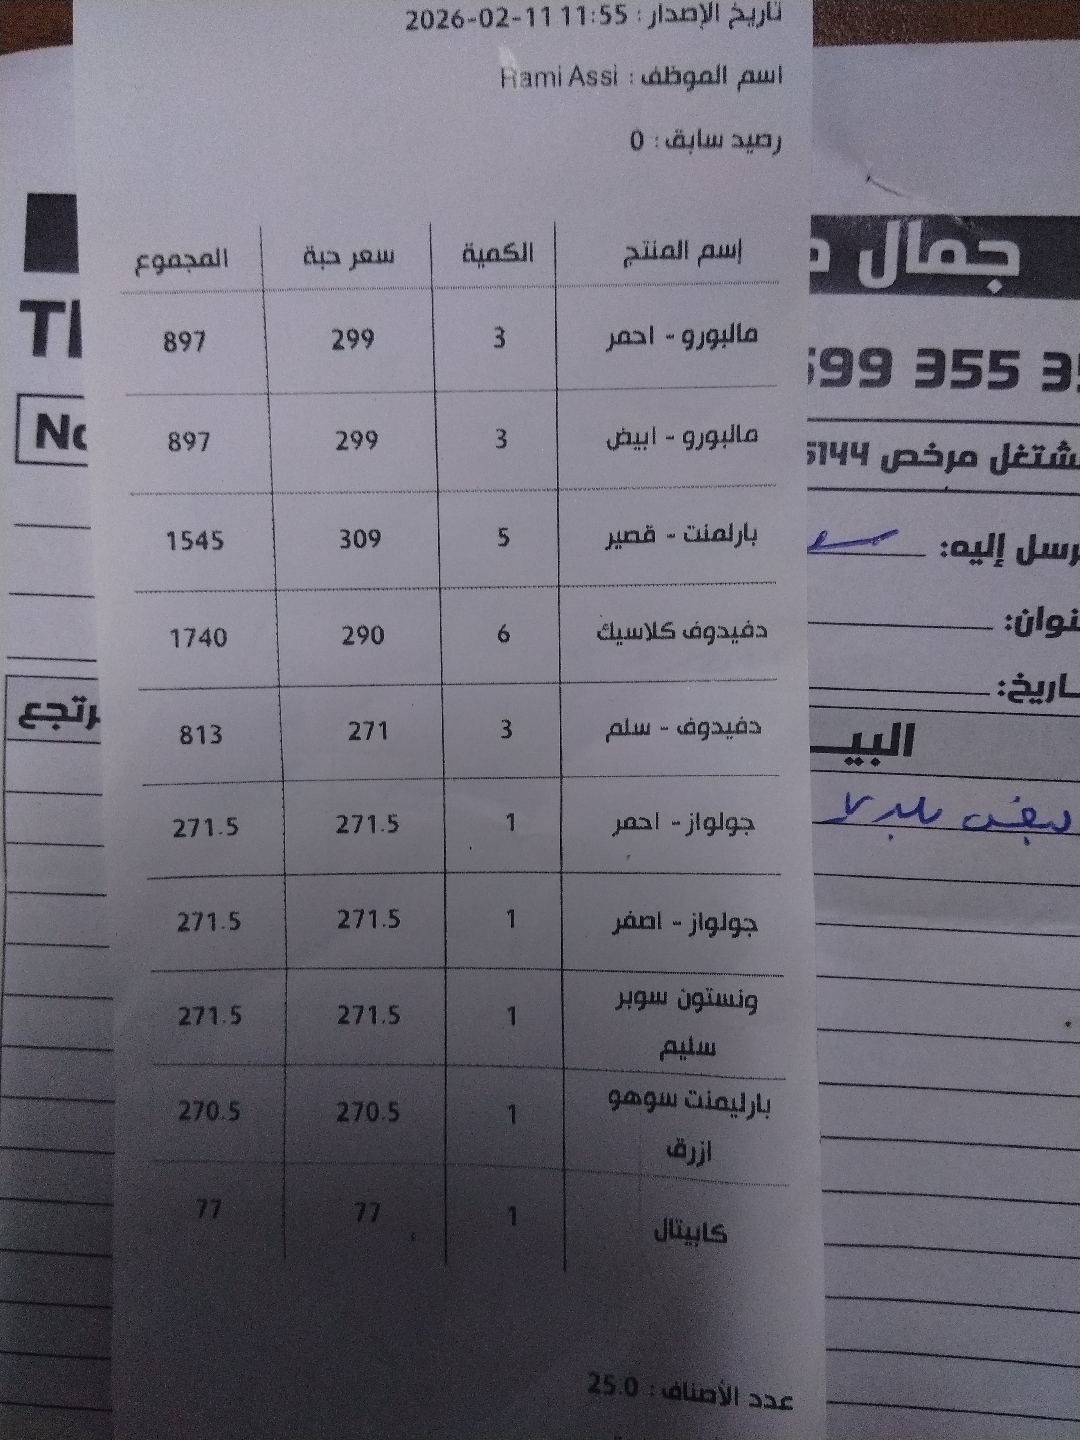 تاريخ الإصدار : 2026-02-11 11:55
اسم الموظف : Rami Assi
رصيد سابق : 0
إسم المنتج الكمية سعر حبة المجموع
مالبورو - احمر 3 299 897
مالبورو - ابيض 3 299 897
بارلمنت - قصير 5 309 1545
دفيدوف كلاسيك 6 290 1740
دفيدوف - سلم 3 271 813
جولواز - احمر 1 271.5 271.5
جولواز - اصفر 1 271.5 271.5
ونستون سوبر سليم 1 271.5 271.5
بارليمنت سوهو ازرق 1 270.5 270.5
كابيتال 1 77 77
عدد الأصناف : 25.0
جمال
599 355 35
شتغل مرخص 5144
رسل إليه:
نوان:
ـاريخ:
البيـ
Tl
No
رتجع